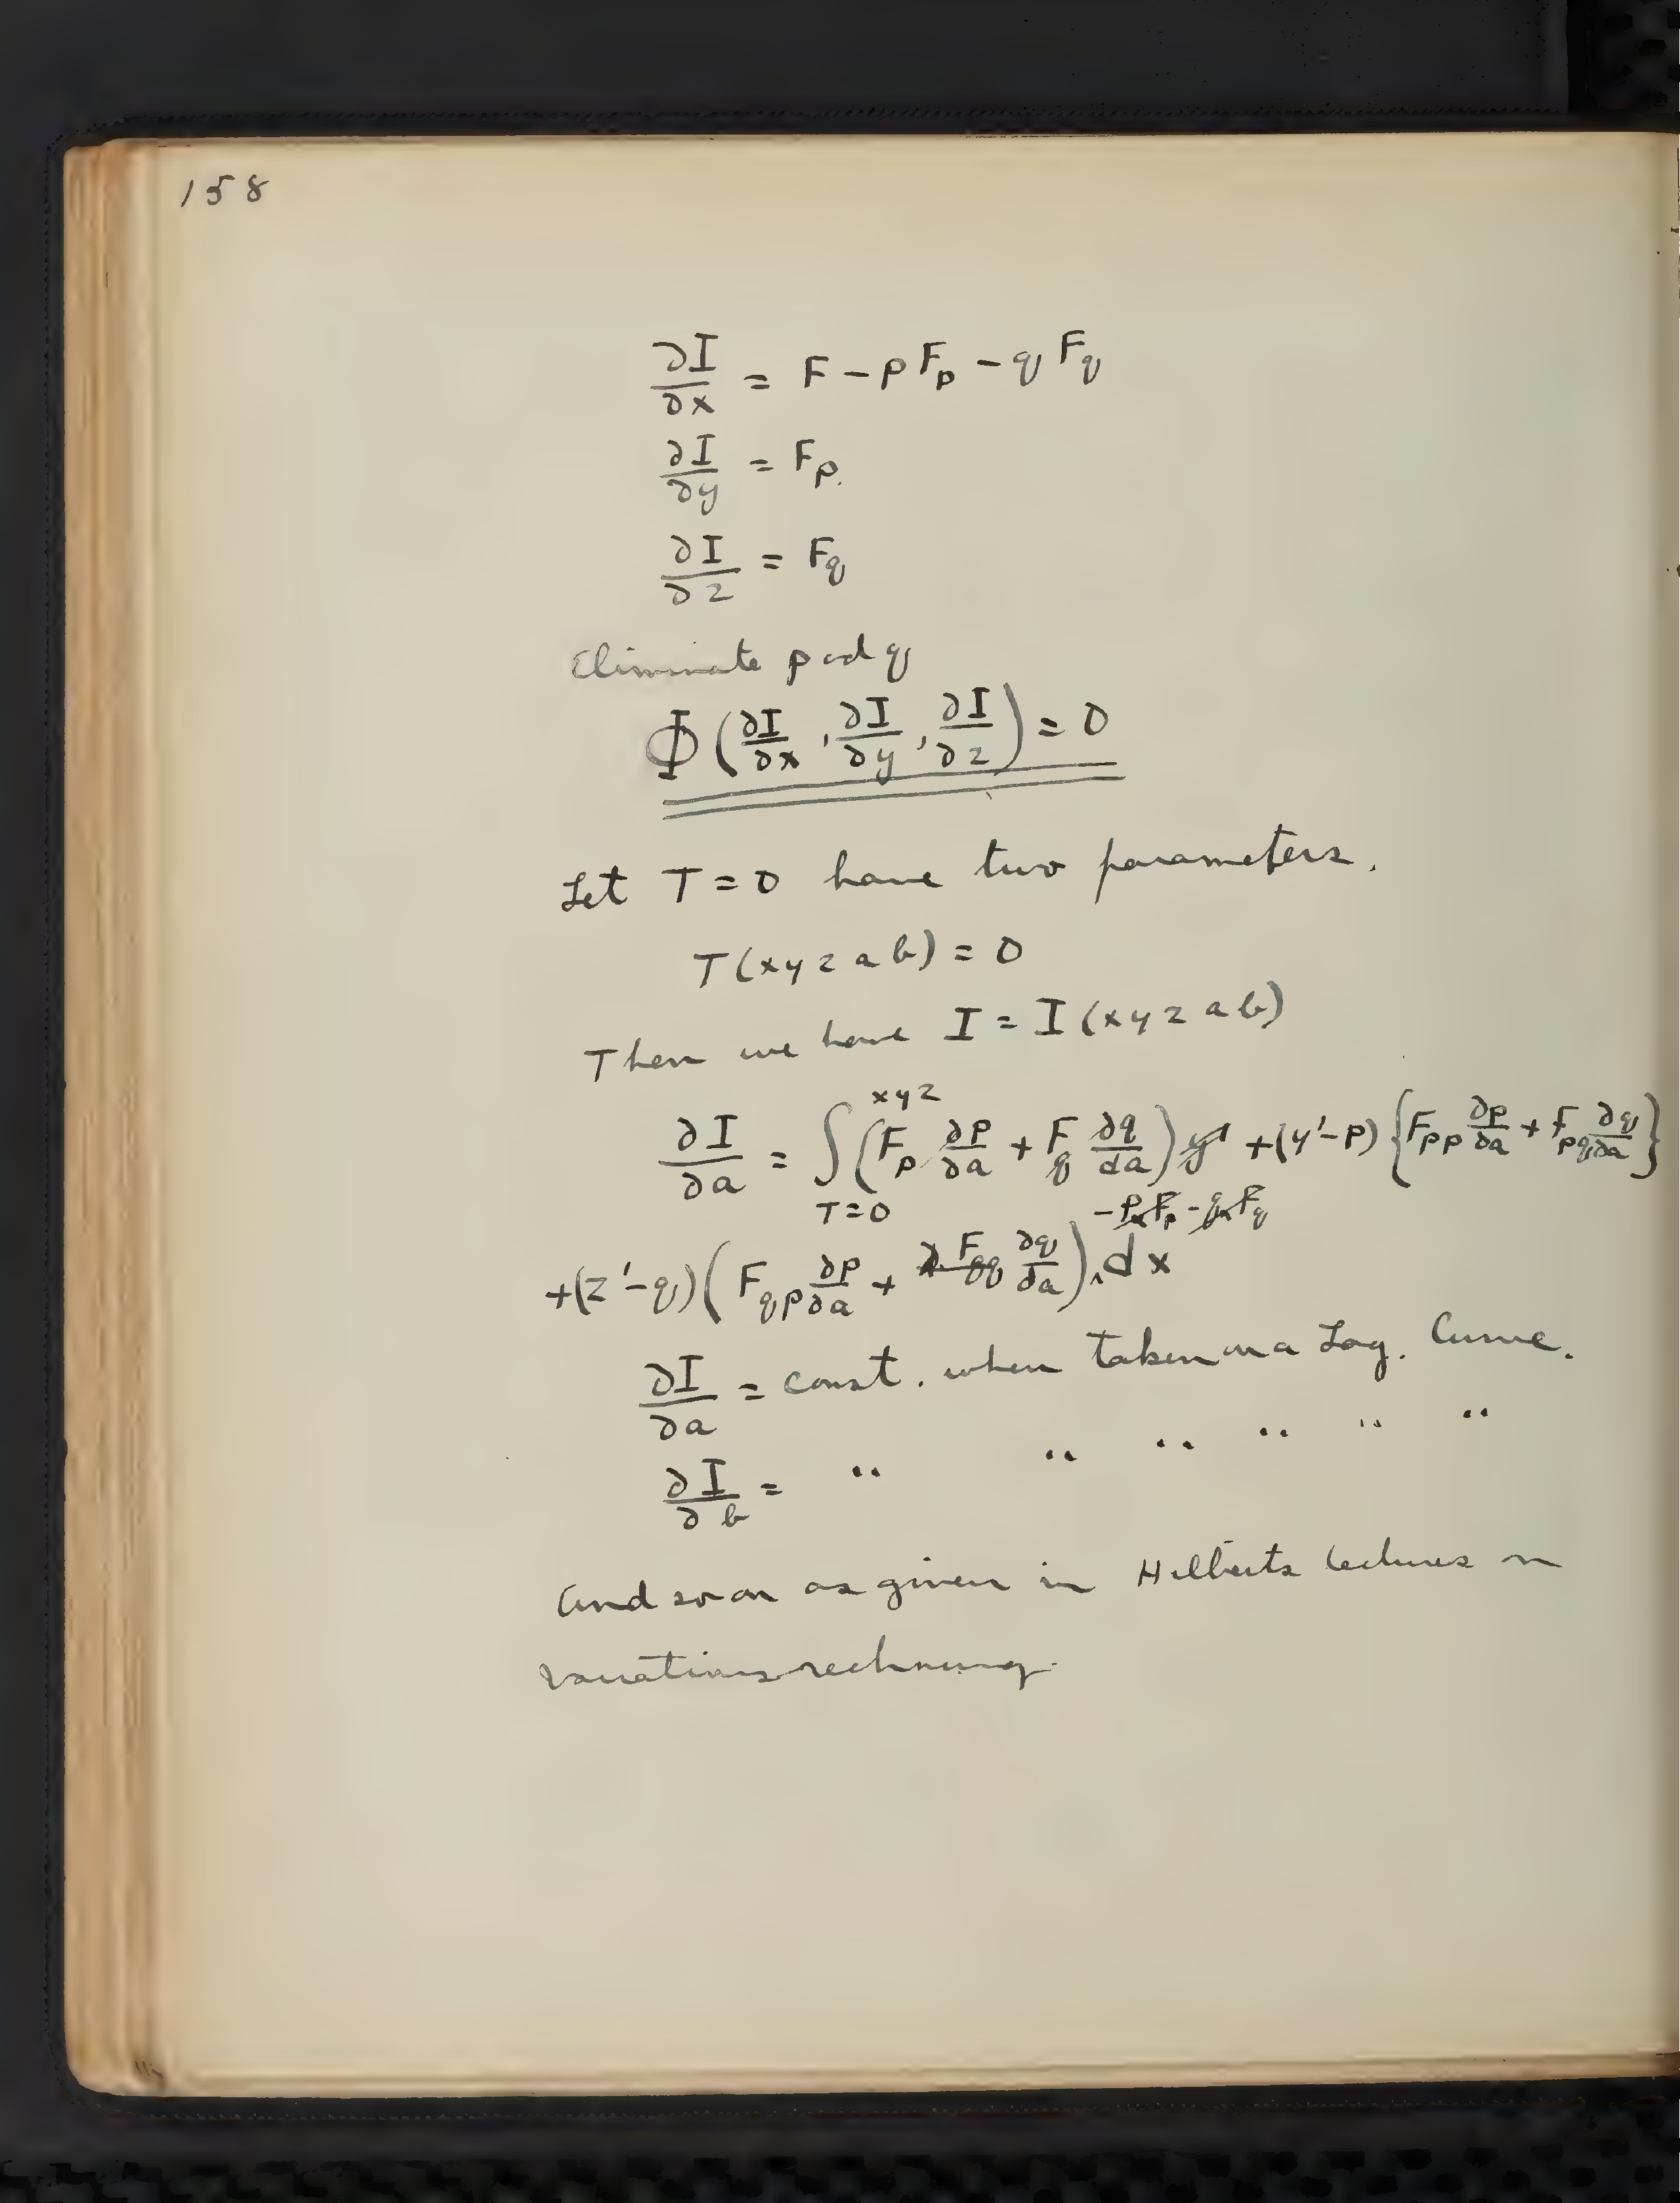 158
∂I/∂x = F - p F_p - q F_q
∂I/∂y = F_p.
∂I/∂z = F_q
Eliminate p and q
Φ(∂I/∂x, ∂I/∂y, ∂I/∂z) = 0
Let T = 0 have two parameters.
T(x y z a b) = 0
Then we have I = I(x y z a b)
∂I/∂a = ∫_{T=0}^{xyz} (F_p ∂p/∂a + F_q ∂q/da) + (y' - p) {F_pp ∂p/∂a + F_pq ∂q/∂a}
- p_x F_p - q_x F_q
+ (z' - q)(F_qp ∂p/∂a + F_qq ∂q/da) dx
∂I/∂a = const. when taken on a Lag. Curve.
∂I/∂b = " " " " " "
And so on as given in Hilberts lectures on
Variationsrechnung.